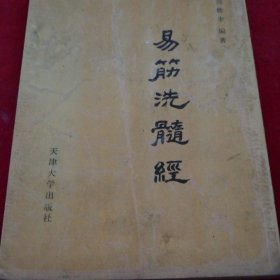 编著
易筋洗髓經
天津大学出版社